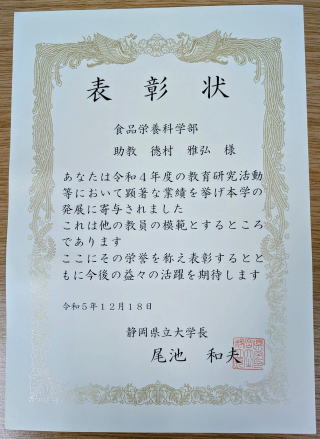 表彰状
食品栄養科学部
助教 徳村 雅弘 様
あなたは令和４年度の教育研究活動
等において顕著な業績を挙げ本学の
発展に寄与されました
これは他の教員の模範とするところ
であります
ここにその栄誉を称え表彰するとと
もに今後の益々の活躍を期待します
令和５年１２月１８日
静岡県立大学長
尾池 和夫